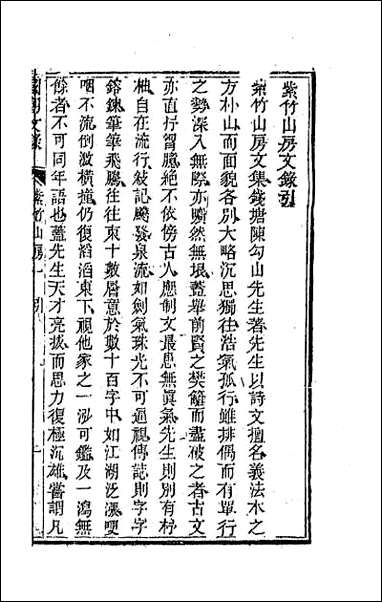 紫竹山房文錄引
紫竹山房文集錢塘陳勾山先生著先生以詩文擅名義法本之
方朴山而面貌各別大略沉思獨往浩氣孤行雖排偶而有單行
之勢深入無際亦曠然無垠蓋舉前賢之樊籬而盡破之者古文
亦直抒胷臆絕不依傍古人應制文最患無眞氣先生則別有杼
柚自在流行敍記騰發泉流如劍氣珠光不可逼視傳誌則字字
鎔鍊筆筆飛騰往往束十數層意於數十百字中如江湖泛瀑哽
咽不流倒激橫撞仍復滔滔東下視他家之一泓可鑑及一瀉無
餘者不可同年語也蓋先生天才亮拔而思力復極沉雄嘗謂凡
國朝文錄
紫竹山房 引
一